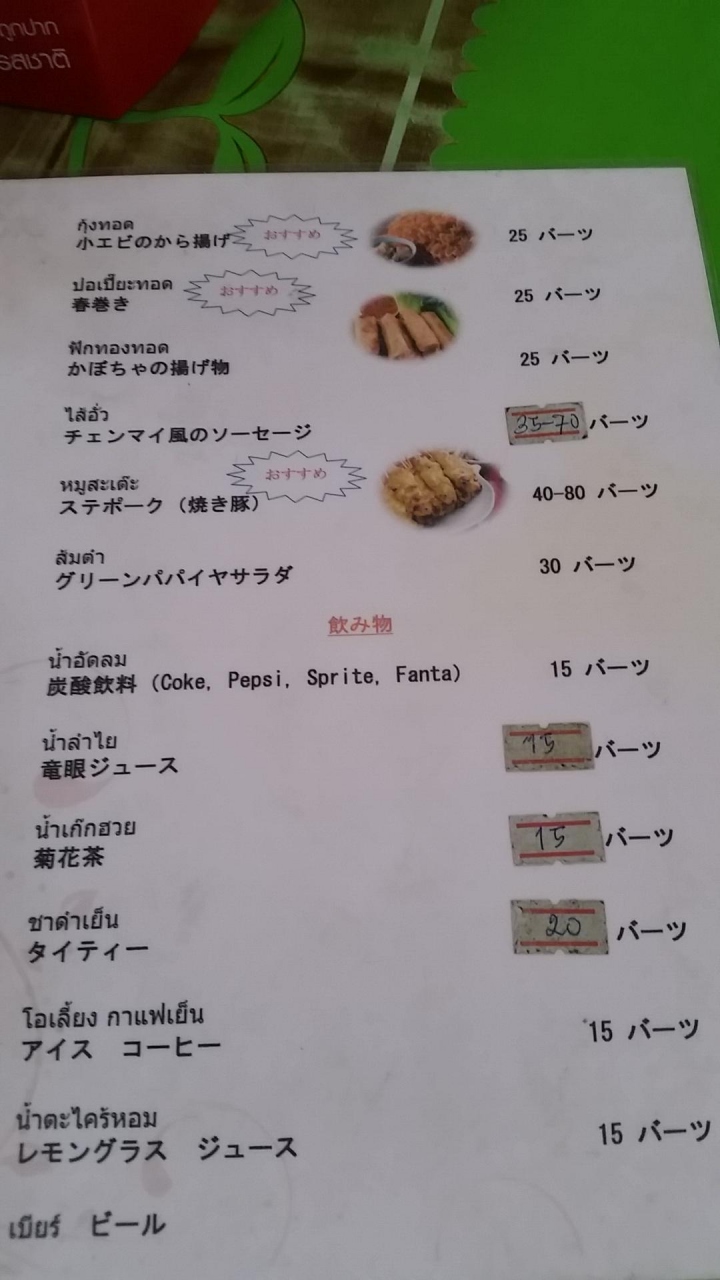 รสชาติ
กุ้งทอด
小エビのから揚げ おすすめ 25 バーツ
ปอเปี๊ยะทอด
春巻き おすすめ 25 バーツ
ฟักทองทอด
かぼちゃの揚げ物 25 バーツ
ไส้อั่ว
チェンマイ風のソーセージ 35-70 バーツ
หมูสะเต๊ะ
ステポーク (焼き豚) おすすめ 40-80 バーツ
ส้มตำ
グリーンパパイヤサラダ 30 バーツ
飲み物
น้ำอัดลม
炭酸飲料 (Coke, Pepsi, Sprite, Fanta) 15 バーツ
น้ำลำไย
竜眼ジュース 15 バーツ
น้ำเก๊กฮวย
菊花茶 15 バーツ
ชาดำเย็น
タイティー 20 バーツ
โอเลี้ยง กาแฟเย็น
アイス コーヒー 15 バーツ
น้ำตะไคร้หอม
レモングラス ジュース 15 バーツ
เบียร์ ビール